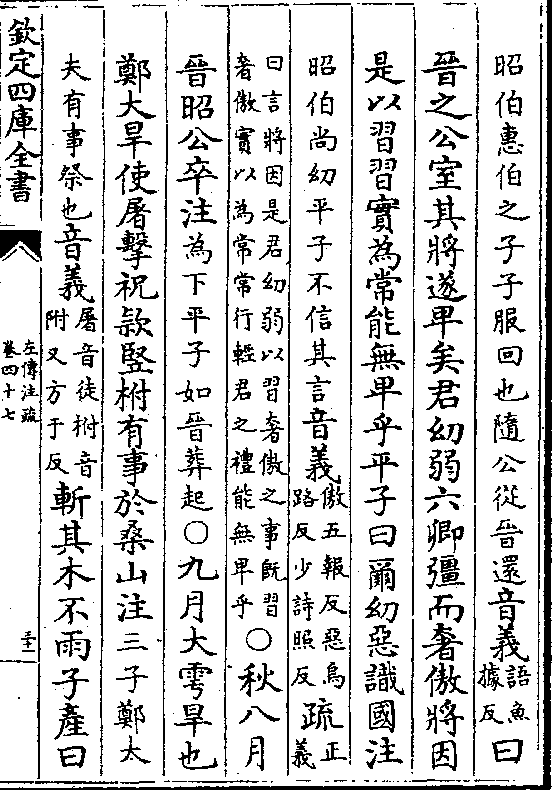 昭伯惠伯之子子服回也隨公從晉還音義語魚據反曰
晉之公室其將遂卑矣君幼弱六卿彊而奢傲將因
是以習習實為常能無卑乎平子曰爾幼惡識國注
昭伯尚幼平子不信其言音義傲五報反惡烏路反少詩照反疏正義
曰言將因是君幼弱以習奢傲之事既習奢傲實以為常常行輕君之禮能無卑乎○秋八月
晉昭公卒注為下平子如晉葬起○九月大雩旱也
鄭大旱使屠擊祝款豎柎有事於桑山注三子鄭大
夫有事祭也音義屠音徒柎音附又方于反斬其木不雨子產曰
欽定四庫全書
左傳注疏
卷四十七